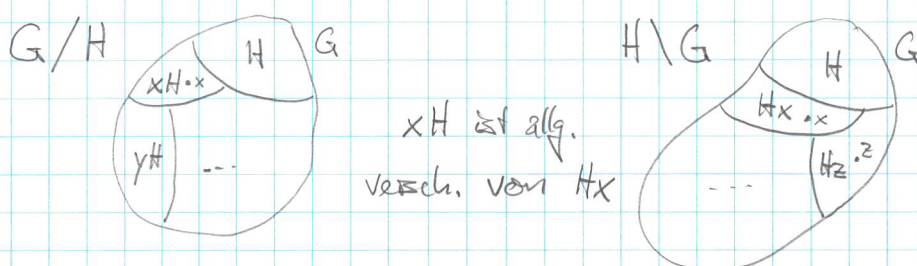 G/H
H
G
xH • x
yH
...
xH ist allg.
versch. von Hx
H\G
G
H
Hx • x
Hz • z
...